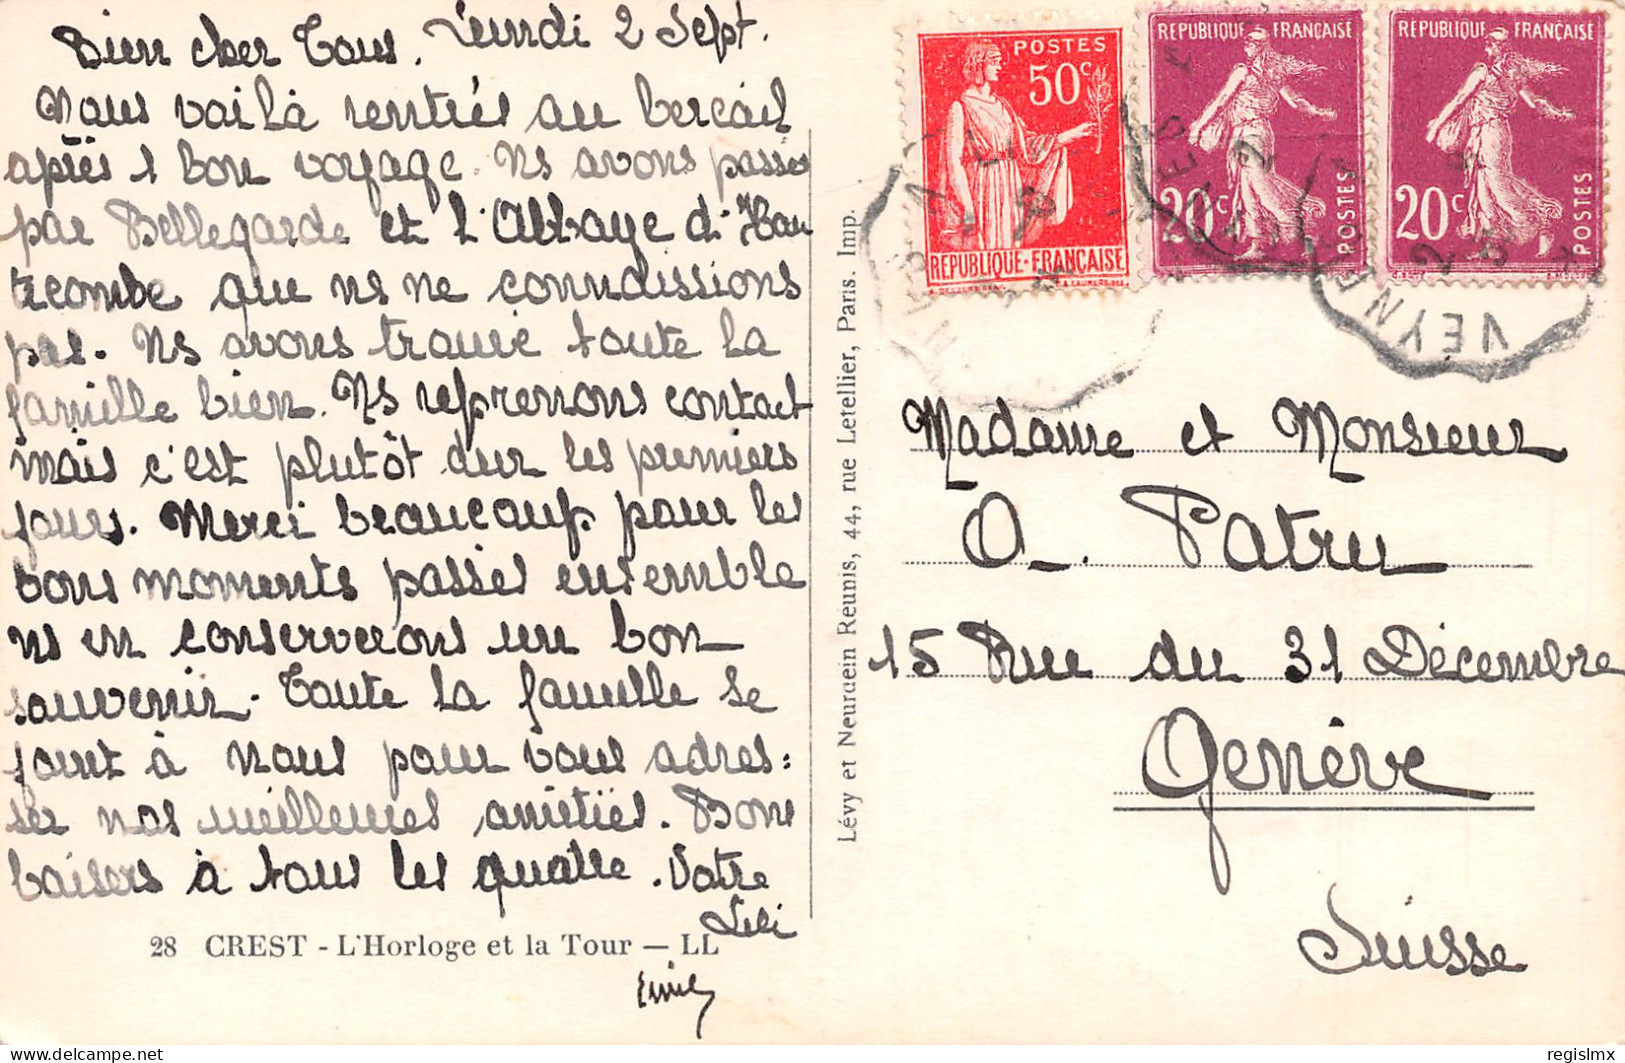 Bien cher Tous. Lundi 2 Sept.
Nous voilà rentrés au bercail
après 1 bon voyage. Ns avons passé
par Bellegarde et l'Abbaye d'Hau
tecombe que ns ne connaissions
pas. Ns avons trouvé toute la
famille bien. Ns reprenons contact
mais c'est plutôt dur les premiers
jours. Merci beaucoup pour les
bons moments passés ensemble
ns en conserverons un bon
souvenir. Toute la famille se
joint à nous pour vous adres=
ser nos meilleures amitiés. Bons
baisers à tous les quatre. Votre
Lili
Emile
28 CREST - L'Horloge et la Tour — LL
Lévy et Neurdein Réunis, 44, rue Letellier, Paris. Imp.
POSTES
50c
REPUBLIQUE·FRANÇAISE
REPUBLIQUE FRANÇAISE
20c
POSTES
REPUBLIQUE FRANÇAISE
20c
POSTES
VEYN
Madame et Monsieur
O. Patru
15 Rue du 31 Décembre
Genève
Suisse
delcampe.net
regislmx